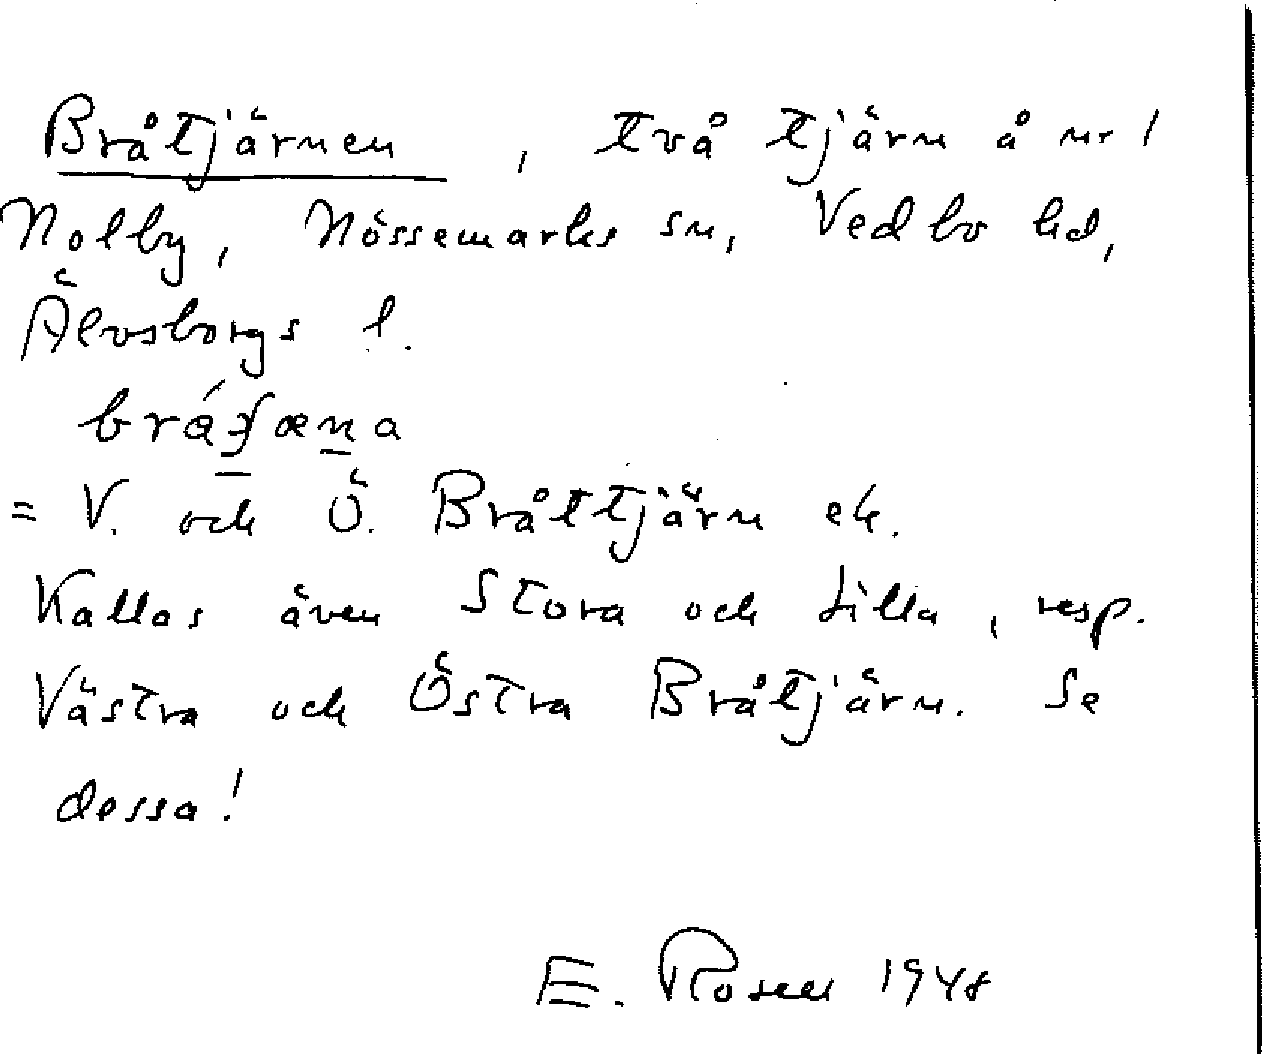 Bråtjärnen, två tjärn å nr 1
Nolby, Nössemarks sn, Vedbo hd,
Älvsborgs l.
= V. och Ö. Bråttjärn ek.
Kallas även Stora och Lilla, resp.
Västra och Östra Bråtjärn. Se
dessa!
E. Rosen 1948